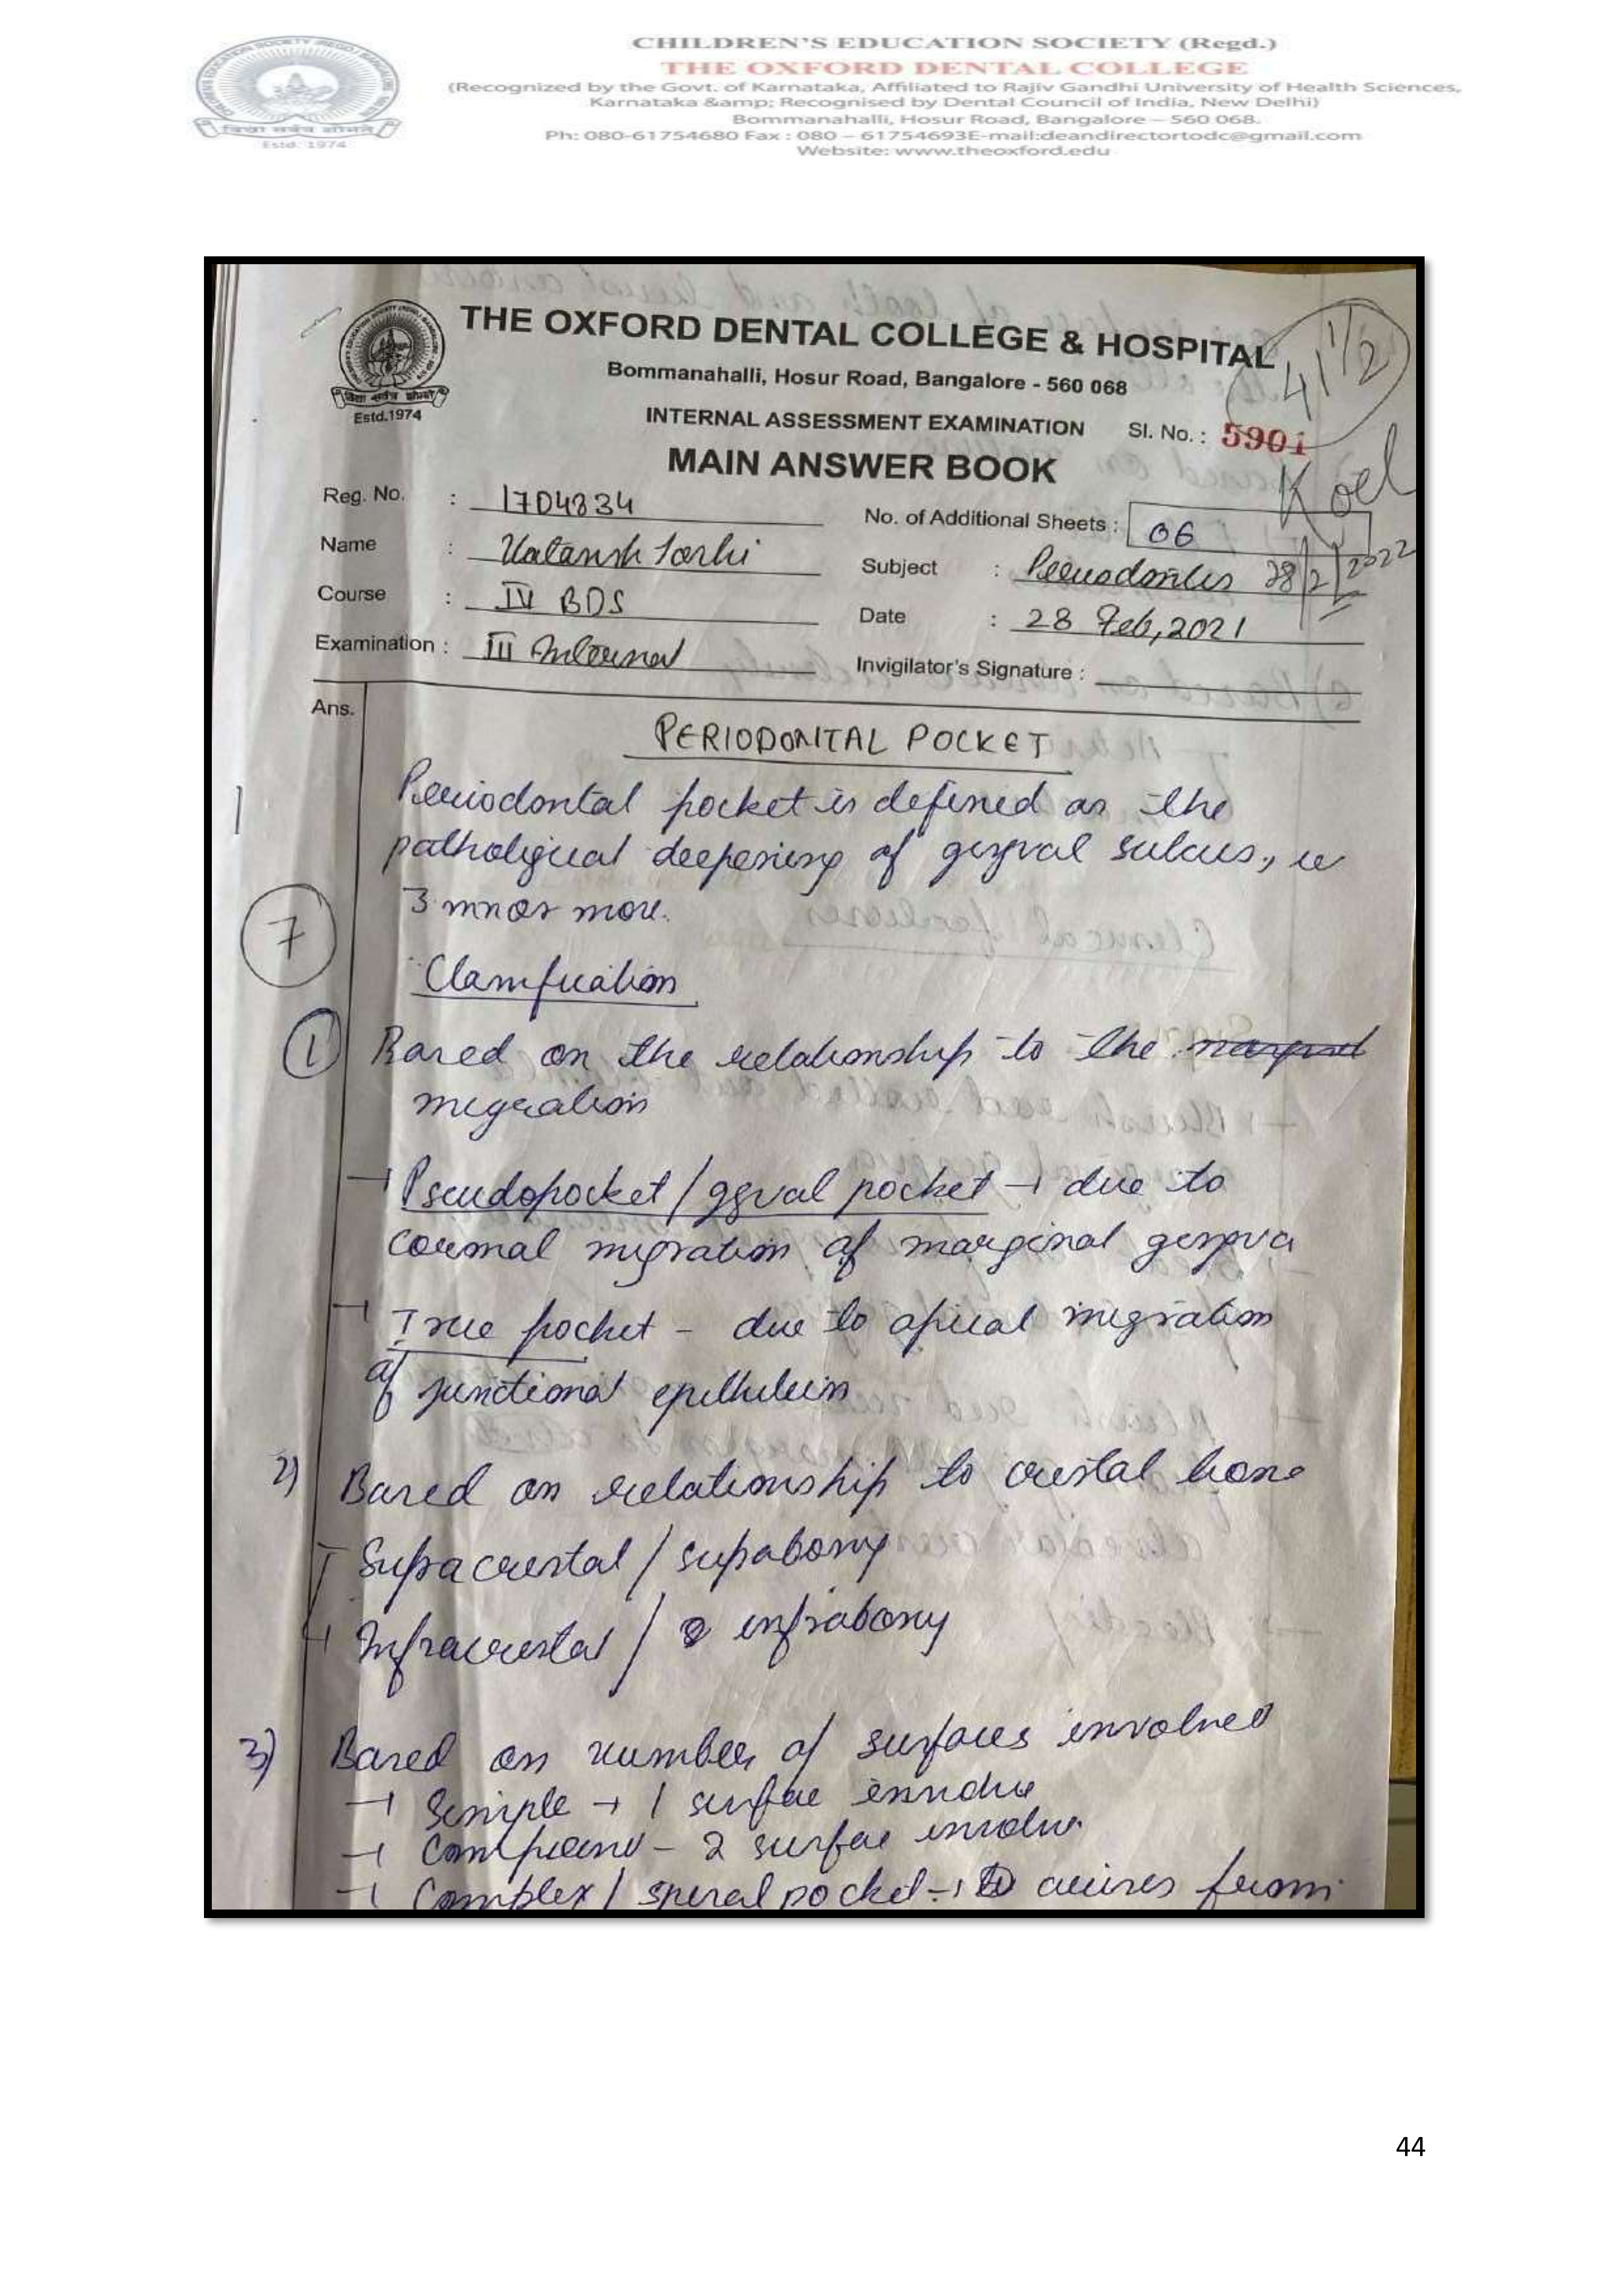 CHILDREN'S EDUCATION SOCIETY (Regd.)
THE OXFORD DENTAL COLLEGE
(Recognized by the Govt. of Karnataka, Affiliated to Rajiv Gandhi University of Health Sciences,
Karnataka &amp; Recognised by Dental Council of India, New Delhi)
Bommanahalli, Hosur Road, Bangalore – 560 068.
Ph: 080-61754680 Fax : 080 – 61754693E-mail:deandirectortodc@gmail.com
Website: www.theoxford.edu
विद्या सर्वत्र शोभते
Estd. 1974
THE OXFORD DENTAL COLLEGE & HOSPITAL
Bommanahalli, Hosur Road, Bangalore - 560 068
41 1/2
विद्या सर्वत्र शोभते
Estd.1974
INTERNAL ASSESSMENT EXAMINATION Sl. No. : 5901
MAIN ANSWER BOOK
Koel
28/2/2022
Reg. No. : 1704834
No. of Additional Sheets : 06
Name :
Subject :
Course : IV BDS
Date : 28 Feb, 2021
Examination : III Internal
Invigilator's Signature :
Ans.
PERIODONTAL POCKET
1
Periodontal pocket is defined as the
pathological deepening of gngval sulcus, ie
3 mm or more.
7
Classification
1 Based on the relationship to the
migration
→ Pseudopocket / ggval pocket → due to
coronal migration of marginal gingiva
→ True pocket - due to apical migration
of junctional epithelium
2) Based on relationship to crestal bone
→ Supracrestal / suprabony
→ Infracrestal / infrabony
3) Based on number of surfaces involved
→ Simple → 1 surface involve
→ Compound - 2 surface involve
→ Complex / spiral pocket → arises from
44